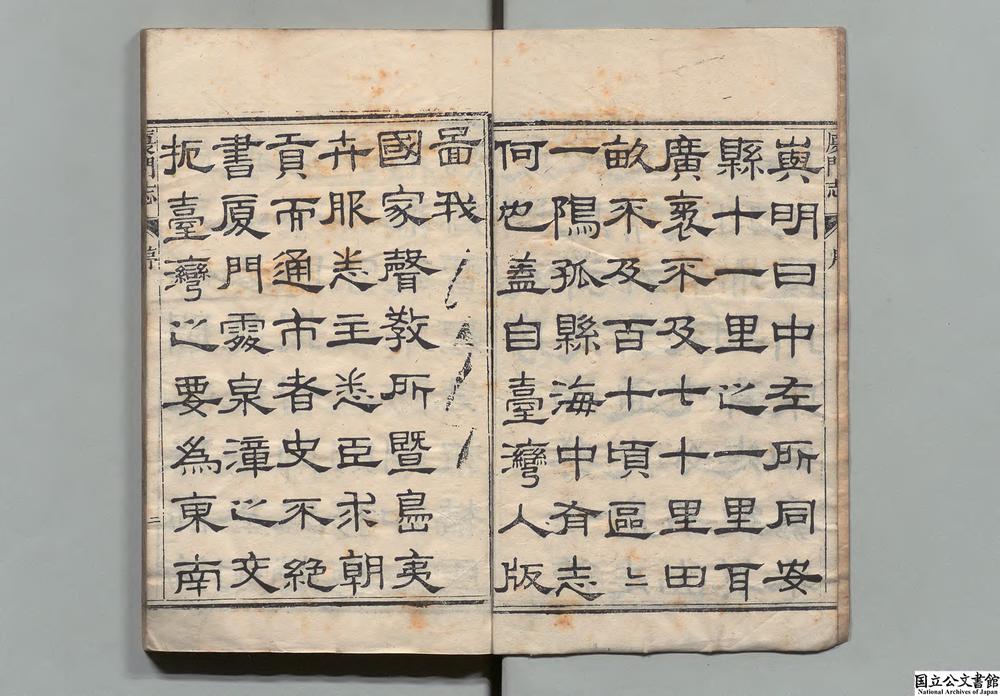 廈門志 序
嶼明曰中左所同安
縣十一里之一里耳
廣袤不及七十里田
畝不及百十頃區〻
一隅孤縣海中有志
何也蓋自臺灣入版
啚我
國家聲教所暨島夷
卉服悉主悉臣求朝
貢而通市者史不絕
書厦門處泉漳之交
扼臺灣之要為東南
廈門志 序 二
国立公文書館
National Archives of Japan